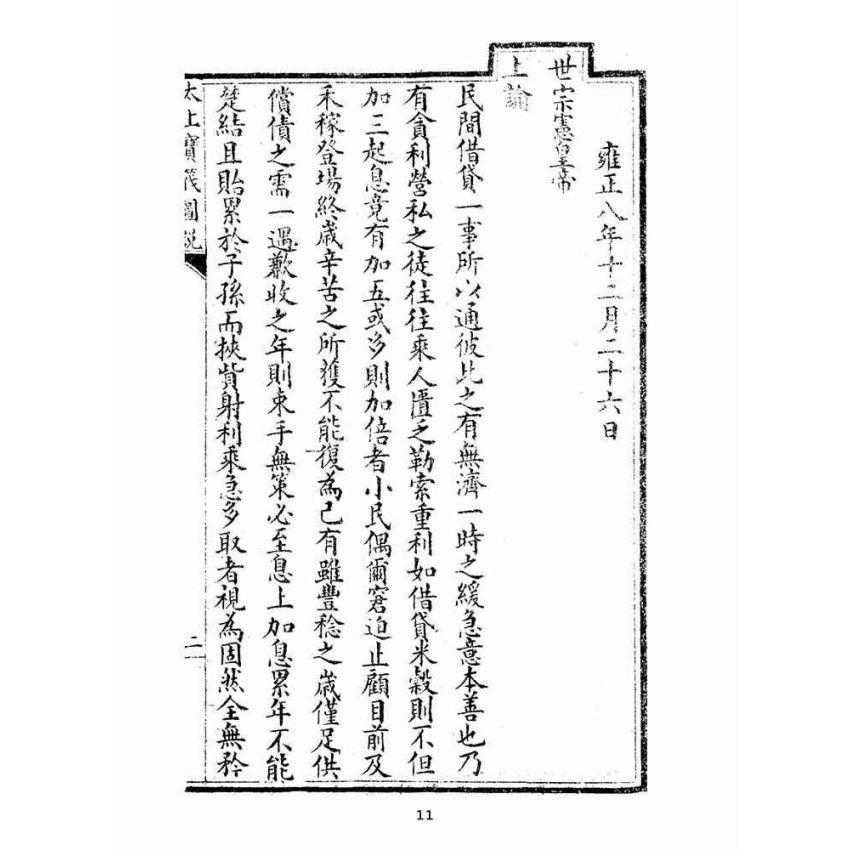 雍正八年十二月二十六日
世宗憲皇帝
上諭
民間借貸一事所以通彼此之有無濟一時之緩急意本善也乃
有貪利營私之徒往往乘人匱乏勒索重利如借貸米穀則不但
加三起息竟有加五或多則加倍者小民偶爾窘迫止顧目前及
禾稼登場終歲辛苦之所獲不能復為己有雖豐稔之歲僅足供
償債之需一遇歉收之年則束手無策必至息上加息累年不能
楚結且貽累於子孫而挾貲射利乘急多取者視為固然全無矜
太上寶筏圖說
二
11